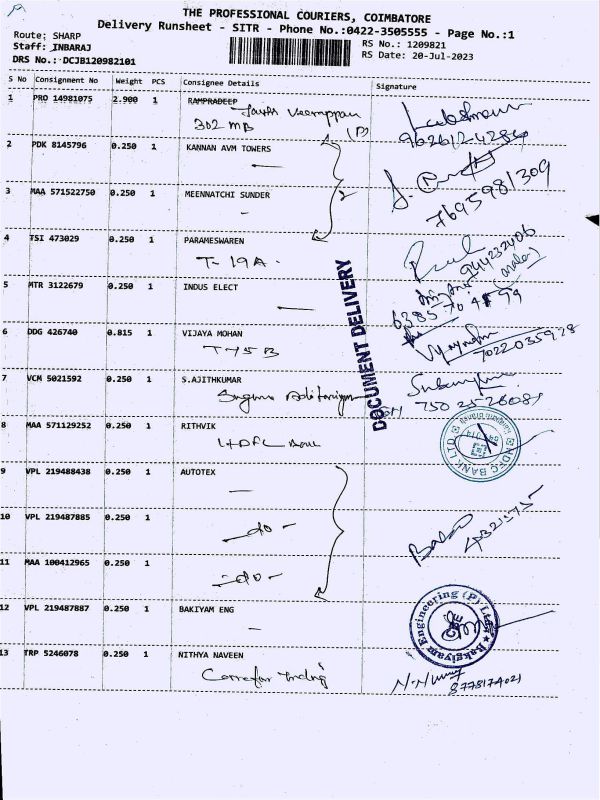 THE PROFESSIONAL COURIERS, COIMBATORE
Delivery Runsheet - SITR - Phone No.:0422-3505555 - Page No.:1
Route: SHARP
Staff: INBARAJ
DRS No.: DCJB120982101
RS No.: 1209821
RS Date: 20-Jul-2023
S No Consignment No Weight PCS Consignee Details Signature
1 PRO 14981075 2.900 1 RAMPRADEEP
302 MB
9626124284
2 PDK 8145796 0.250 1 KANNAN AVM TOWERS
3 MAA 571522750 0.250 1 MEENNATCHI SUNDER
2
7695981309
4 TSI 473029 0.250 1 PARAMESWAREN
T-19A
944232406
5 MTR 3122679 0.250 1 INDUS ELECT
6 DDG 426740 0.815 1 VIJAYA MOHAN
T-75B
7022035928
DOCUMENT DELIVERY
7 VCM 5021592 0.250 1 S.AJITHKUMAR
8 MAA 571129252 0.250 1 RITHVIK
HDFC Bank
HDFC BANK LTD
9 VPL 219488438 0.250 1 AUTOTEX
10 VPL 219487885 0.250 1
-do-
11 MAA 100412965 0.250 1
-do-
12 VPL 219487887 0.250 1 BAKIYAM ENG
Bakgiyam Engineering (P) Ltd
13 TRP 5246078 0.250 1 NITHYA NAVEEN
8778174021